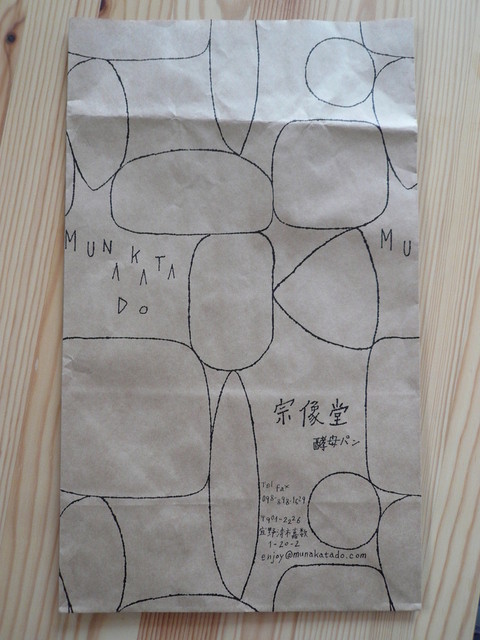 MUNAKATA
DO
MU
宗像堂
酵母パン
Tel Fax
098-898-1529
〒901-2226
宜野湾市嘉数
1-20-2
enjoy@munakatado.com